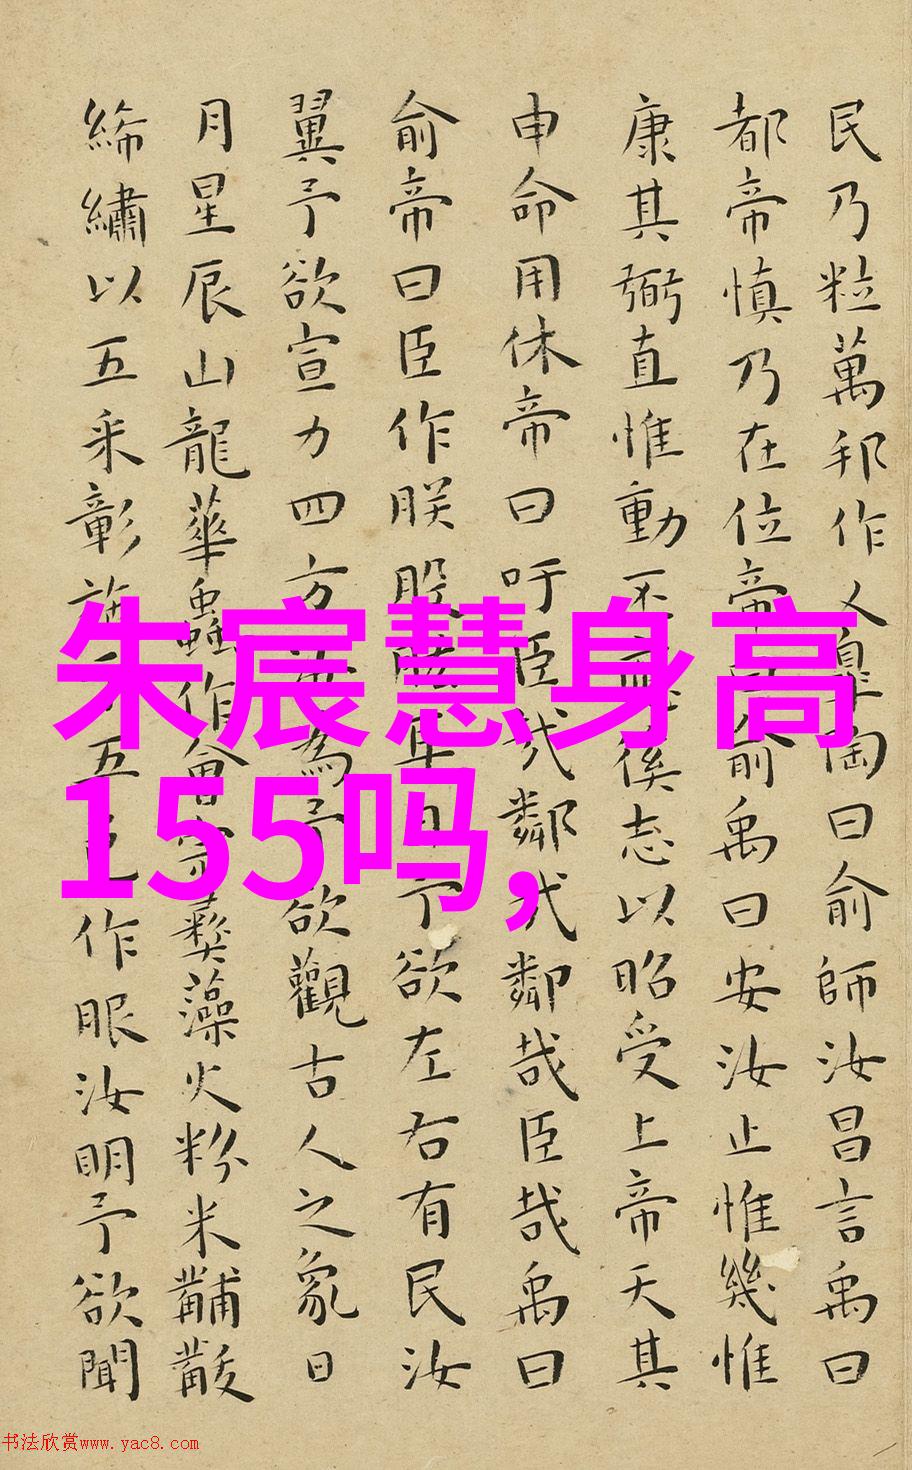 民乃粒萬邦作乂皋陶曰俞師汝昌言禹曰
都帝慎乃在位帝曰俞禹曰安汝止惟幾惟
康其弼直惟動丕徯志以昭受上帝天其
申命用休帝曰吁臣哉鄰哉鄰哉臣哉禹曰
俞帝曰臣作朕股肱耳目予欲左右有民汝
翼予欲宣力四方汝為予欲觀古人之象日
月星辰山龍華蟲作會宗彝藻火粉米黼黻
絺繡以五采彰施于五色作服汝明予欲聞
朱宸慧身高
155吗,
书法欣赏www.yac8.com